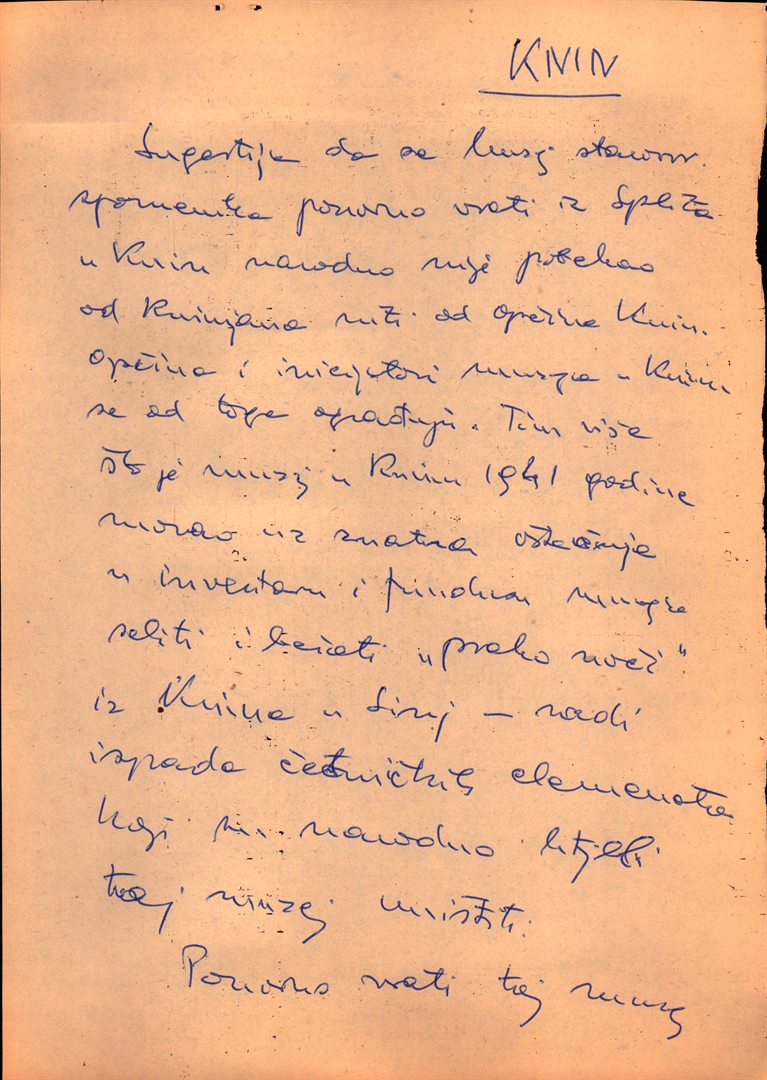 KNIN
Sugestija da se muzej starohrv.
spomenika ponovno vrati iz Splita
u Knin navodno nije potekao
od Kninjana niti od općine Knin.
Općina i inicijatori muzeja u Kninu
se od toga ograđuju. Tim više
što je muzej u Kninu 1941 godine
morao uz znatna oštećenja
u inventaru i fundusu muzeja
seliti i bežati „preko noći"
iz Knina u Sinj – radi
ispada četničkih elemenata
koji su navodno htjeli
taj muzej uništiti.
Ponovno vrati taj muzej